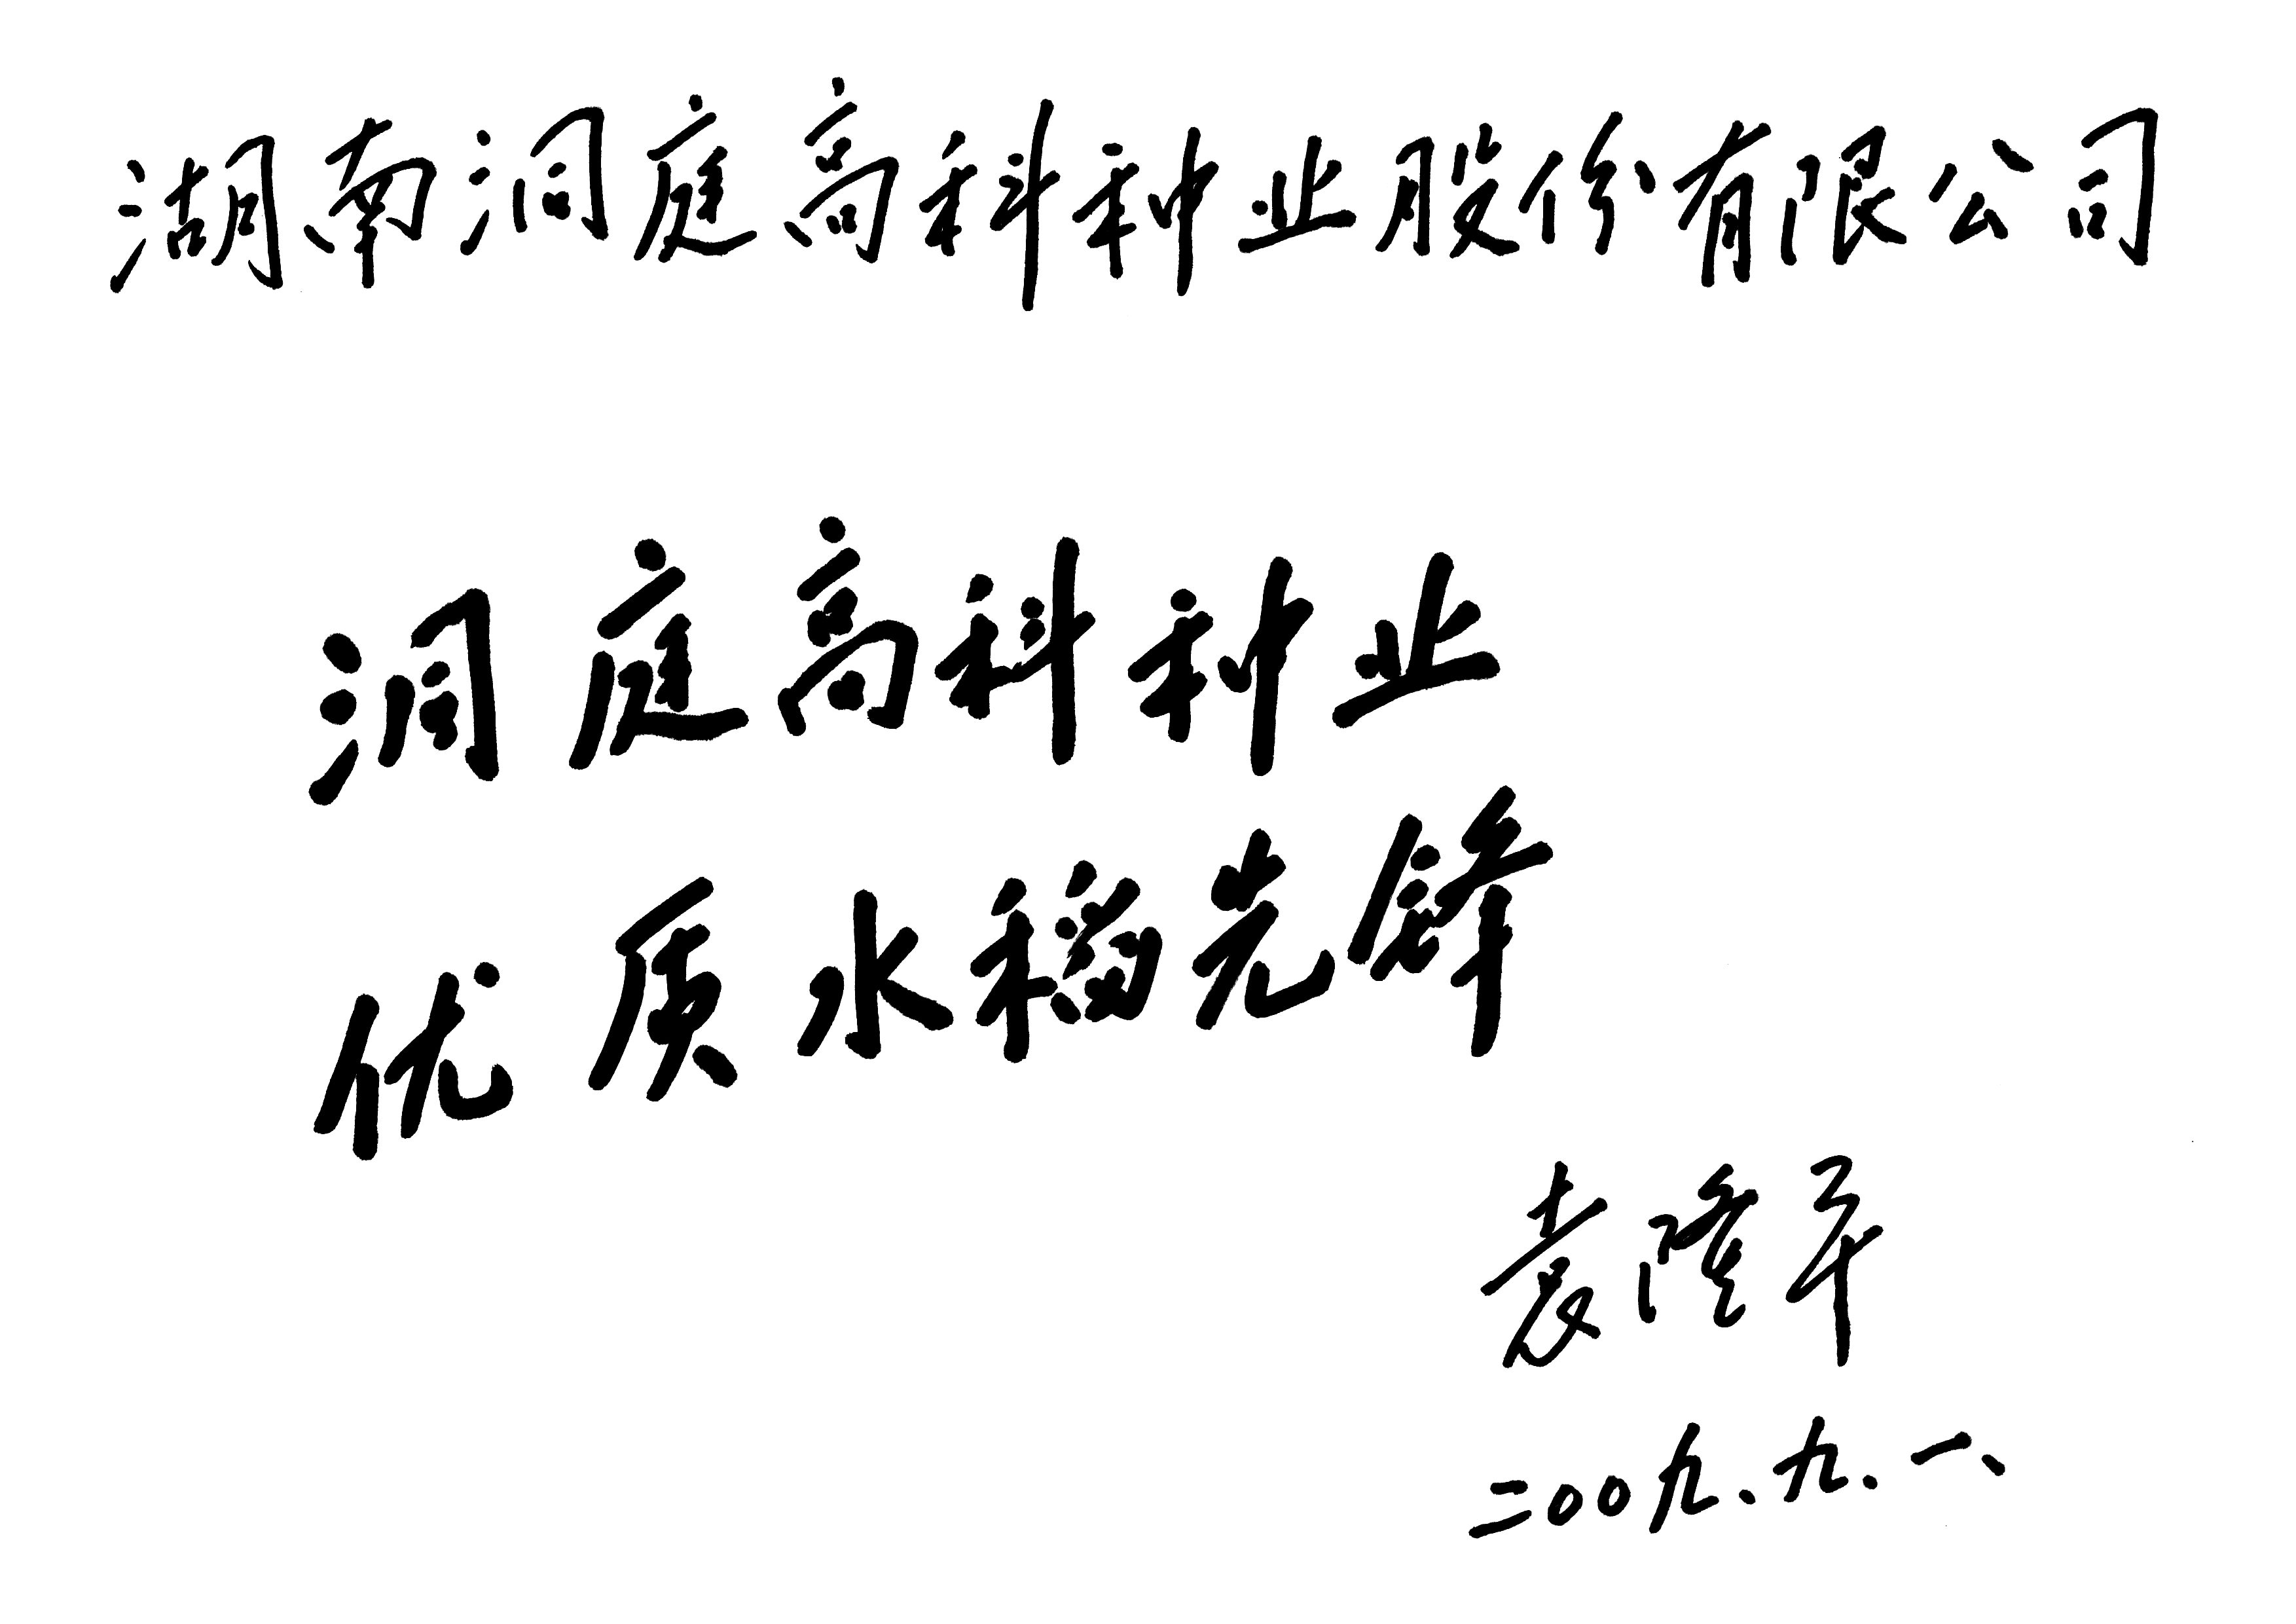 湖南洞庭高科种业股份有限公司
洞庭高科种业
优质水稻先锋
袁隆平
二00九.九.一、